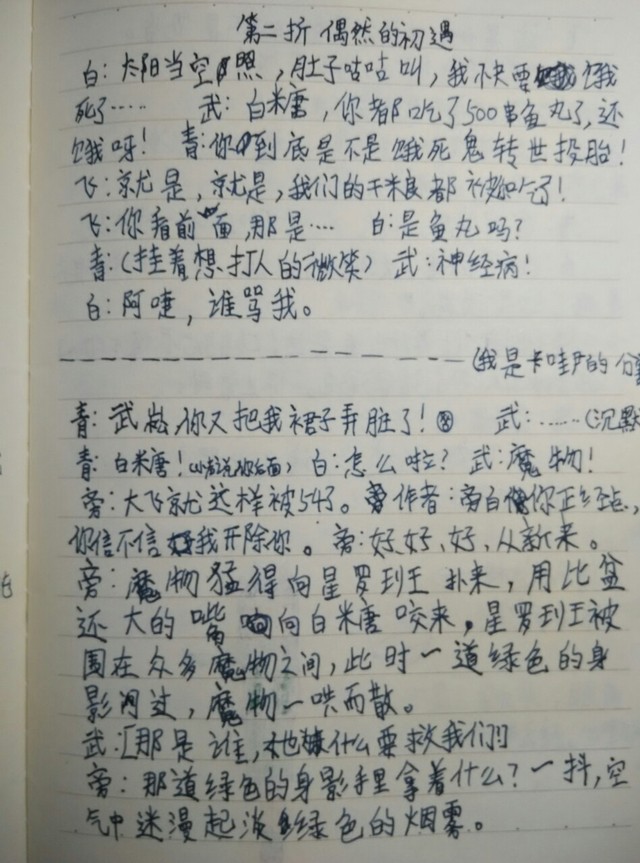 第二折 偶然的初遇
白:太阳当空照,肚子咕咕叫,我快要饿
死了…… 武:白米唐,你都吃了500串鱼丸了,还
饿呀! 青:你到底是不是饿死鬼转世投胎!
飞:就是,就是,我们的干粮都被你吃了!
飞:你看前面,那是… 白:是鱼丸吗?
青:(挂着想打人的微笑) 武:神经病!
白:阿嚏,谁骂我。
(我是卡哇尹的分
青:武崧,你又把我裙子弄脏了! 武:……(沉默
青:白米唐!(小青说你后面) 白:怎么啦? 武:魔物!
旁:大飞就这样被544了。作者:旁白你正经点,
你信不信我开除你。旁:好、好、好、从新来。
旁:魔物猛得向星罗班王扑来,用比盆
还大的嘴向白米唐咬来,星罗班王被
围在众多魔物之间,此时一道绿色的身
影闪过,魔物一哄而散。
武:[那是谁,她什么要救我们]
旁:那道绿色的身影手里拿着什么?一抖,空
气中迷漫起淡绿色的烟雾。